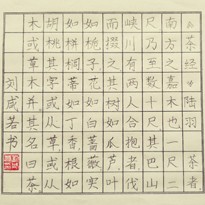 茶经 陆羽 茶者
南方之嘉木也一尺二
尺乃至数十尺其巴山
峡川有两人合抱者伐
而掇之其树如瓜芦叶
如栀子花如白蔷薇实
如栟榈蒂如丁香根如
胡桃其字或从草或从
木或草木并其名曰茶
刘成若书